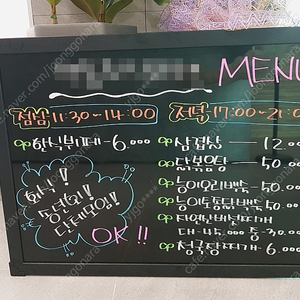 MENU
점심 11:30~14:00
저녁 17:00~21:0
한식뷔페 - 6.000
삼겹살 — 12
닭볶음탕 — 50
능이오리백숙 - 50.0
능이토종닭백숙 - 50.
대-45.000 중-30.0
청국장찌개 - 6.00
회식!
송년회!
단체모임!
OK!!